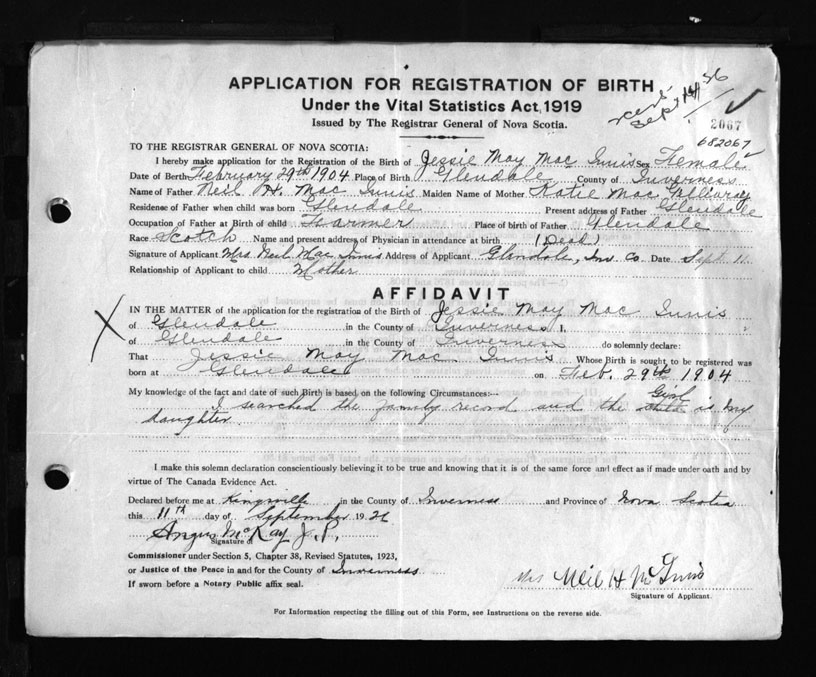 APPLICATION FOR REGISTRATION OF BIRTH
Under the Vital Statistics Act, 1919
Issued by The Registrar General of Nova Scotia.
2067
682067
TO THE REGISTRAR GENERAL OF NOVA SCOTIA:
I hereby make application for the Registration of the Birth of Jessie May Mac Innis Sex Female
Date of Birth February 29th 1904 Place of Birth Glendale County of Inverness
Name of Father Neil H. Mac Innis Maiden Name of Mother Katie Mac Gillivray
Residense of Father when child was born Glendale Present address of Father Glendale
Occupation of Father at Birth of child Farmer Place of birth of Father Glendale
Race Scotch Name and present address of Physician in attendance at birth (Dead)
Signature of Applicant Mrs. Neil Mac Innis Address of Applicant Glendale, Inv. Co. Date Sept. 11
Relationship of Applicant to child Mother
AFFIDAVIT
IN THE MATTER of the application for the registration of the Birth of Jessie May Mac Innis
of Glendale in the County of Inverness I,
of Glendale in the County of Inverness do solemnly declare:
That Jessie May Mac Innis Whose Birth is sought to be registered was
born at Glendale on Feb. 29th 1904
My knowledge of the fact and date of such Birth is based on the following Circumstances:—
I searched the family record and the child Girl is my
daughter
I make this solemn declaration conscientiously believing it to be true and knowing that it is of the same force and effect as if made under oath and by
virtue of The Canada Evidence Act.
Declared before me at Kingsville in the County of Inverness and Province of Nova Scotia
this 11th day of September 19
Angus McKay J.P.,
Signature of
Commissioner under Section 5, Chapter 38, Revised Statutes, 1923,
or Justice of the Peace in and for the County of Inverness
If sworn before a Notary Public affix seal.
Mrs Neil H McInnis
Signature of Applicant.
For Information respecting the filling out of this Form, see Instructions on the reverse side.